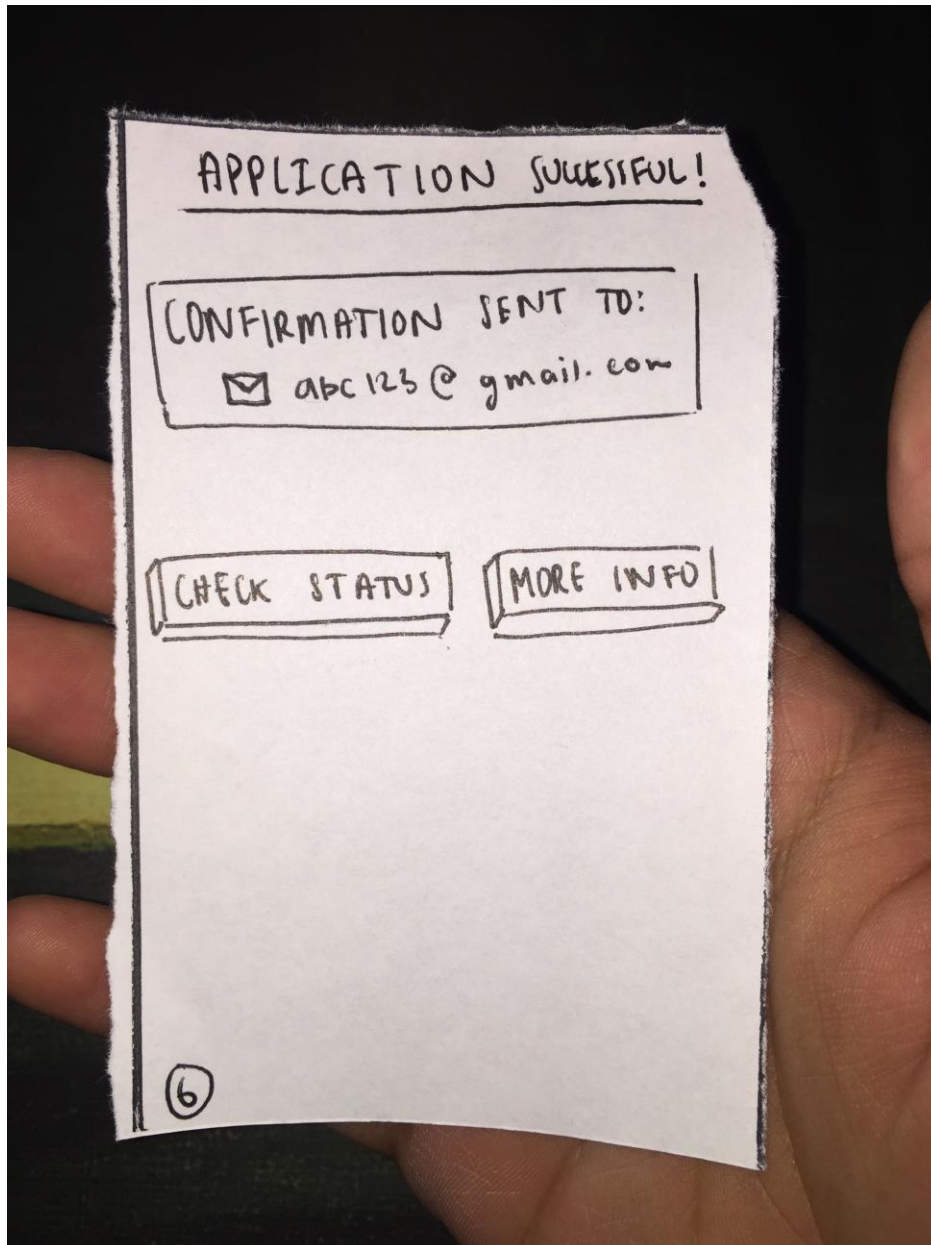 APPLICATION SUCCESSFUL!
CONFIRMATION SENT TO:
abc123@gmail.com
CHECK STATUS
MORE INFO
6